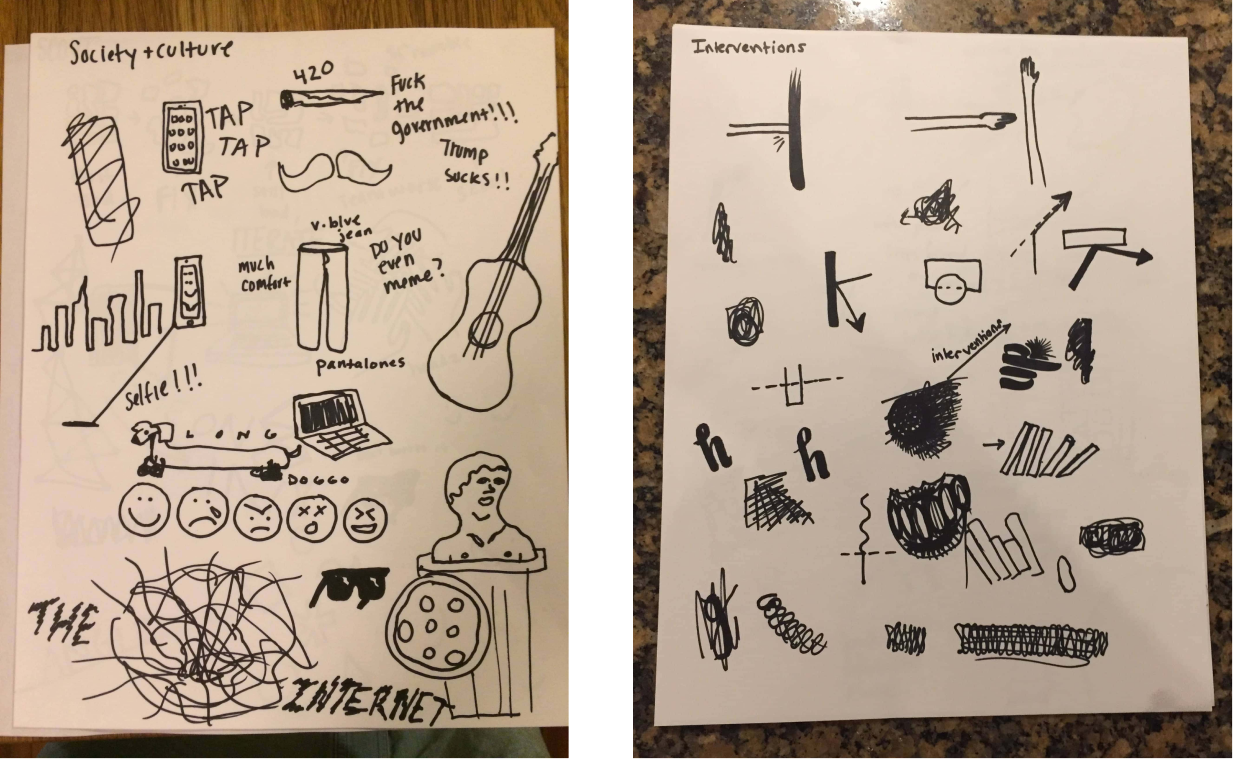 Society + culture
420
Fuck
the
government!!!
TAP
TAP
TAP
Trump
sucks!!
v. blue
jean
DO YOU
even
meme?
much
comfort
pantalones
Selfie!!!
LONG
DOGGO
THE
INTERNET
Interventions
interventions
h
h